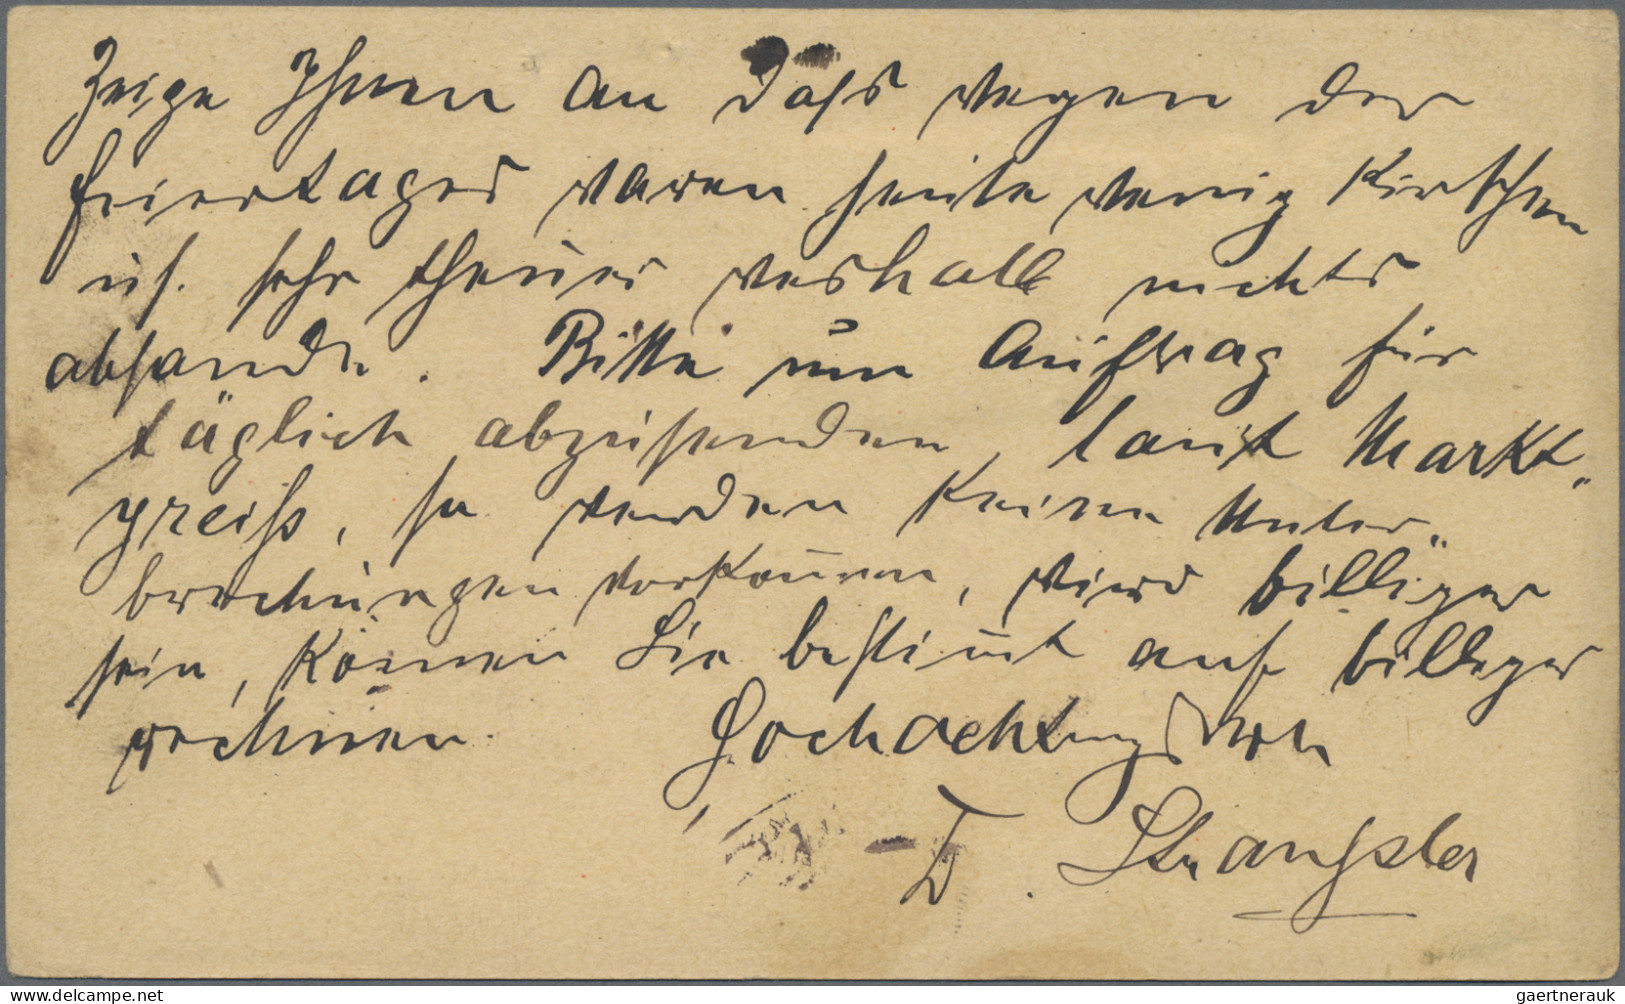 Zeige Ihnen an dass wegen der
Feiertages waren heute wenig Kirschen
u. sehr theuer weshalb nichts
absande. Bitte um Auftrag für
täglich abzusenden, laut Markt„
preiss, so werden keine Unter„
brechungen vorkom̅en, wird billiger
sein, kön̅en Sie bestim̅t auf billiger
rechnen. Hochachtungsvoll
D.
delcampe.net
gaertnerauk